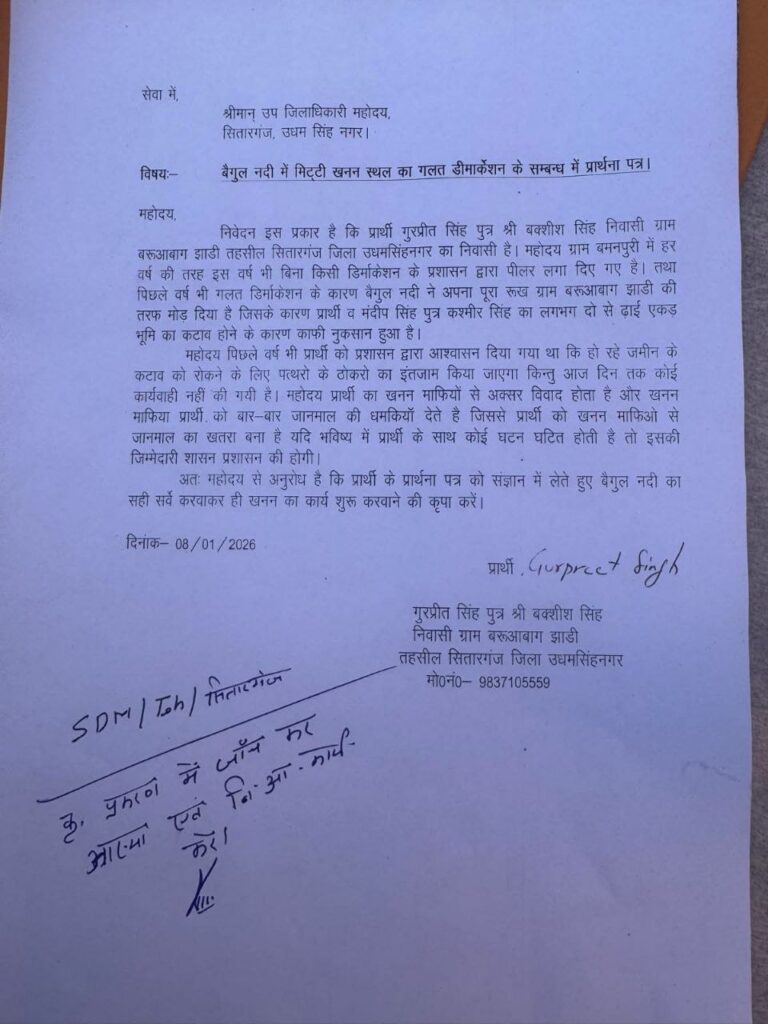 सेवा में,
श्रीमान् उप जिलाधिकारी महोदय,
सितारगंज, उधम सिंह नगर।
विषयः– बैगुल नदी में मिट्टी खनन स्थल का गलत डीमार्केशन के सम्बन्ध में प्रार्थना पत्र।
महोदय,
निवेदन इस प्रकार है कि प्रार्थी गुरप्रीत सिंह पुत्र श्री बक्शीश सिंह निवासी ग्राम
बरूआबाग झाडी तहसील सितारगंज जिला उधमसिंहनगर का निवासी है। महोदय ग्राम बमनपुरी में हर
वर्ष की तरह इस वर्ष भी बिना किसी डिर्माकेशन के प्रशासन द्वारा पीलर लगा दिए गए है। तथा
पिछले वर्ष भी गलत डिर्माकेशन के कारण बैगुल नदी ने अपना पूरा रूख ग्राम बरूआबाग झाडी की
तरफ मोड दिया है जिसके कारण प्रार्थी व मंदीप सिंह पुत्र कश्मीर सिंह का लगभग दो से ढ़ाई एकड़
भूमि का कटाव होने के कारण काफी नुकसान हुआ है।
महोदय पिछले वर्ष भी प्रार्थी को प्रशासन द्वारा आश्वासन दिया गया था कि हो रहे जमीन के
कटाव को रोकने के लिए पत्थरो के ठोकरो का इंतजाम किया जाएगा किन्तु आज दिन तक कोई
कार्यवाही नहीं की गयी है। महोदय प्रार्थी का खनन माफियों से अक्सर विवाद होता है और खनन
माफिया प्रार्थी को बार–बार जानमाल की धमकियॉ देते है जिससे प्रार्थी को खनन माफिओ से
जानमाल का खतरा बना है यदि भविष्य में प्रार्थी के साथ कोई घटन घटित होती है तो इसकी
जिम्मेदारी शासन प्रशासन की होगी।
अतः महोदय से अनुरोध है कि प्रार्थी के प्रार्थना पत्र को संज्ञान में लेते हुए बैगुल नदी का
सही सर्वे करवाकर ही खनन का कार्य शुरू करवाने की कृपा करें।
दिनांक– 08/01/2026
प्रार्थी Gurpreet Singh
गुरप्रीत सिंह पुत्र श्री बक्शीश सिंह
निवासी ग्राम बरूआबाग झाडी
तहसील सितारगंज जिला उधमसिंहनगर
मो0नं0– 9837105559
SDM/ सितारगंज
कृ. प्रकरण में जाँच कर
आख्या एवं नि.आ. कार्य.
करें।